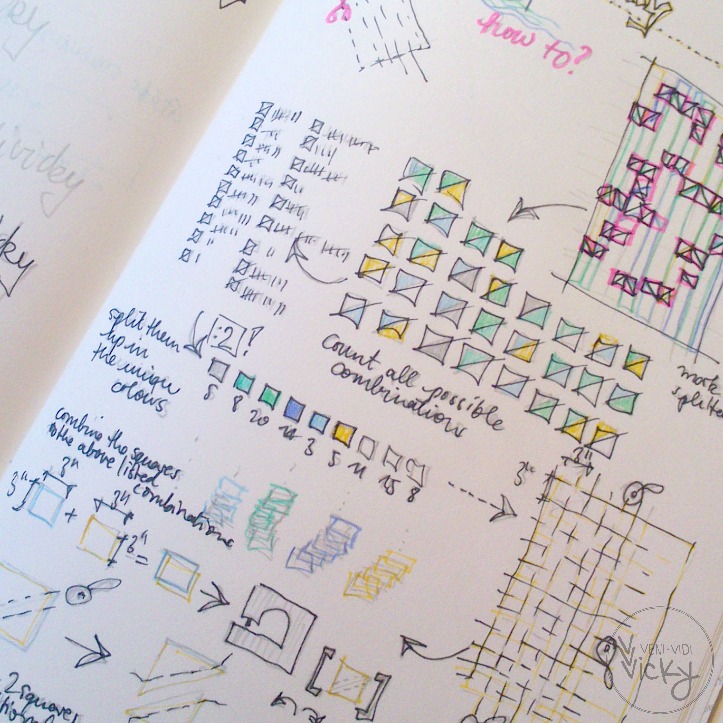 how to?
split them
up in
the unique
colours
:2 !
count all possible
combinations
5
8
20
14
3
5
11
15
8
combine the squares
to the above listed
combinations
3"
3"
+
3"
3"
=
3"
3"
2 squares
VENI·VIDI
VICKY